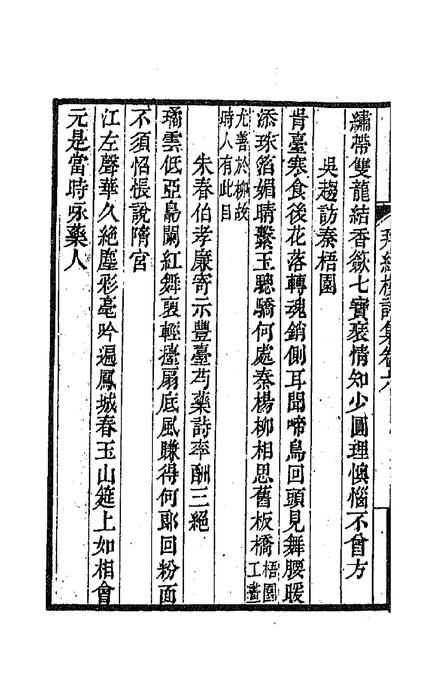 拜經樓詩集卷
繡帶雙龍結香籢七寶裝情知少圓理懊惱不曾方
吳趨訪秦梧園
胥臺寒食後花落轉魂銷側耳聞啼鳥回頭見舞腰暖
添珠箔媚晴繫玉驄驕何處秦楊柳相思舊板橋梧園工畫
尤善於柳故
時人有此目
朱春伯孝廉寄示豐臺芍藥詩率酬三絕
璚雲低亞鳥闌紅舞裛輕擡扇底風賺得何郎回粉面
不須怊悵說隋宮
江左聲華久絕塵彩毫吟遍鳳城春玉山筵上如相會
元是當時咏藥人